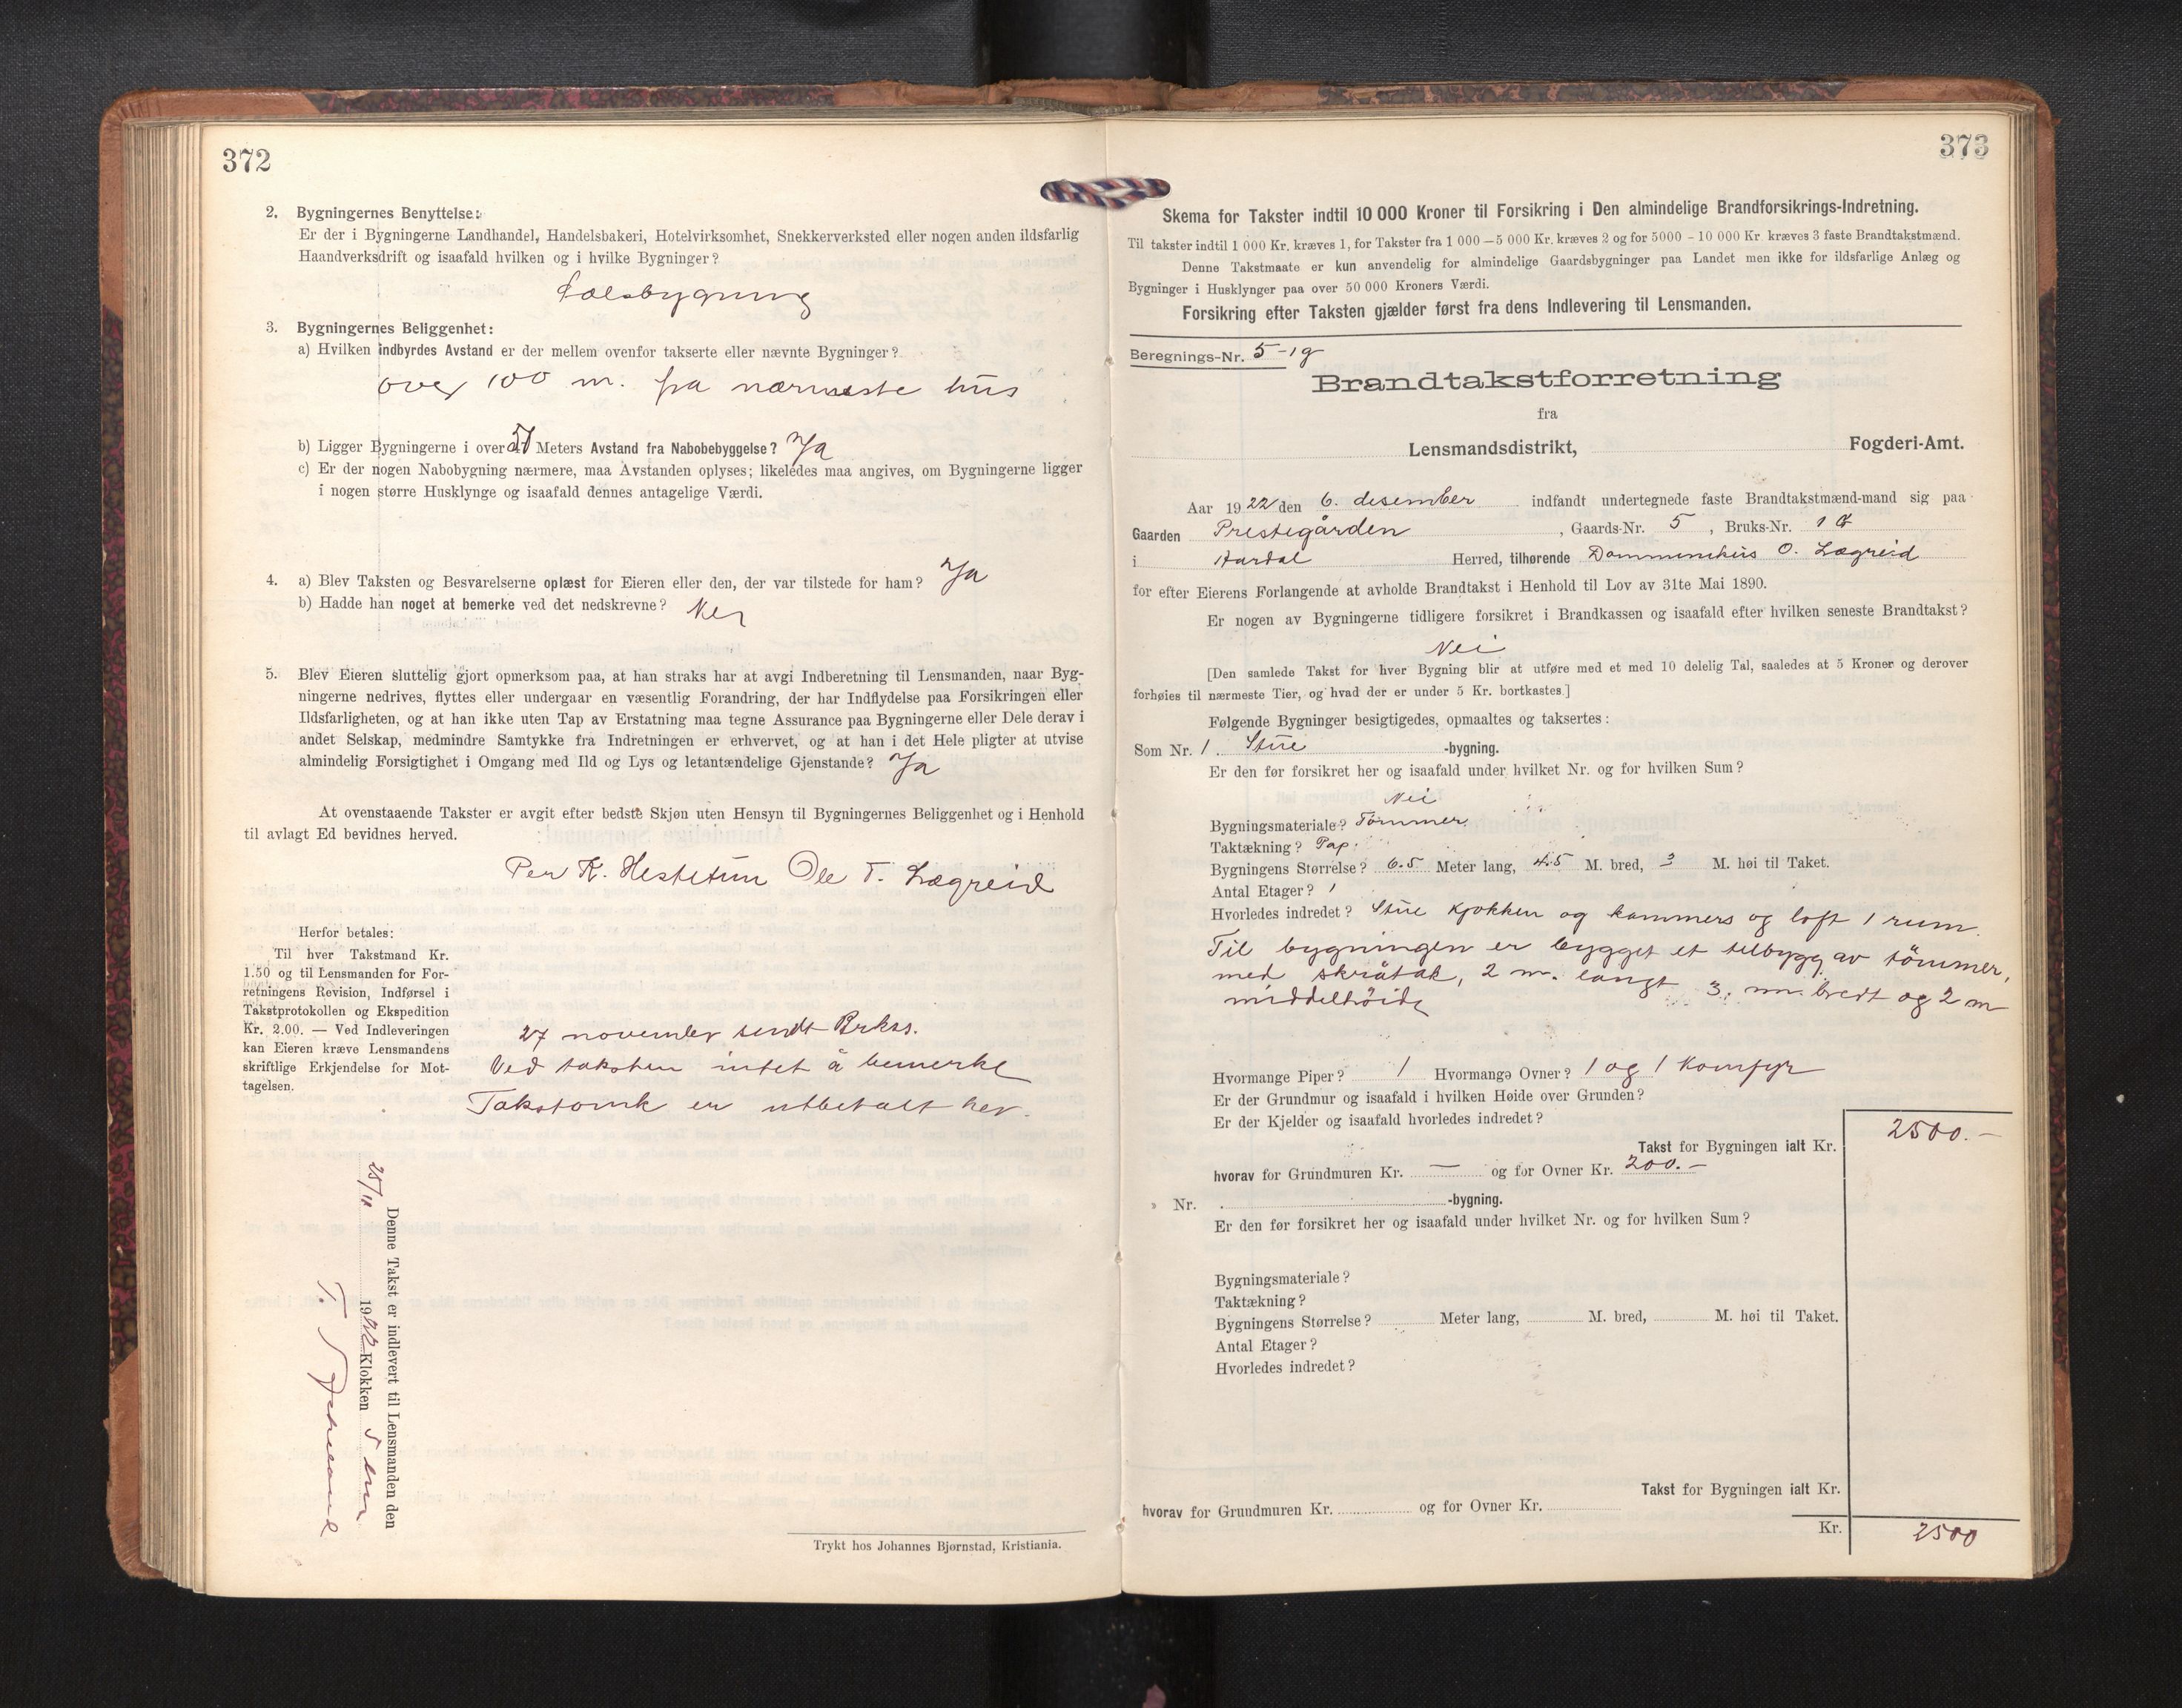 372
2. Bygningernes Benyttelse:
Er der i Bygningerne Landhandel, Handelsbakeri, Hotelvirksomhet, Snekkerverksted eller nogen anden ildsfarlig
Haandverksdrift og isaafald hvilken og i hvilke Bygninger?
3. Bygningernes Beliggenhet:
a) Hvilken indbyrdes Avstand er der mellem ovenfor takserte eller nævnte Bygninger?
over 100 m. fra nærmeste hus
b) Ligger Bygningerne i over Meters Avstand fra Nabobebyggelse? Ja
c) Er der nogen Nabobygning nærmere, maa Avstanden oplyses; likeledes maa angives, om Bygningerne ligger
i nogen større Husklynge og isaafald dennes antagelige Værdi.
4. a) Blev Taksten og Besvarelserne oplæst for Eieren eller den, der var tilstede for ham? Ja
b) Hadde han noget at bemerke ved det nedskrevne? Nei
5. Blev Eieren sluttelig gjort opmerksom paa, at han straks har at avgi Indberetning til Lensmanden, naar Byg-
ningerne nedrives, flyttes eller undergaar en væsentlig Forandring, der har Indflydelse paa Forsikringen eller
Ildsfarligheten, og at han ikke uten Tap av Erstatning maa tegne Assurance paa Bygningerne eller Dele derav i
andet Selskap, medmindre Samtykke fra Indretningen er erhvervet, og at han i det Hele pligter at utvise
almindelig Forsigtighet i Omgang med Ild og Lys og letantændelige Gjenstande? Ja
At ovenstaaende Takster er avgit efter bedste Skjøn uten Hensyn til Bygningernes Beliggenhet og i Henhold
til avlagt Ed bevidnes herved.
Per K. Hestetun Ole T. Lægreid
Herfor betales:
Til hver Takstmand Kr.
1.50 og til Lensmanden for For-
retningens Revision, Indførsel i
Takstprotokollen og Ekspedition
Kr. 2.00. — Ved Indleveringen
kan Eieren kræve Lensmandens
skriftlige Erkjendelse for Mot-
tagelsen.
27 november sendt Brkss.
Ved taksten intet å bemerke
Takstomk er utbetalt her.
Denne Takst er indlevert til Lensmanden den
25/11 1922 Klokken 5 em
T.
Trykt hos Johannes Bjørnstad, Kristiania.
373
Skema for Takster indtil 10 000 Kroner til Forsikring i Den almindelige Brandforsikrings-Indretning.
Til takster indtil 1 000 Kr. kræves 1, for Takster fra 1 000 — 5 000 Kr. kræves 2 og for 5000 - 10 000 Kr. kræves 3 faste Brandtakstmænd.
Denne Takstmaate er kun anvendelig for almindelige Gaardsbygninger paa Landet men ikke for ildsfarlige Anlæg og
Bygninger i Husklynger paa over 50 000 Kroners Værdi.
Forsikring efter Taksten gjælder først fra dens Indlevering til Lensmanden.
Beregnings-Nr. 5-19
Brandtakstforretning
fra
Lensmandsdistrikt, Fogderi-Amt.
Aar 1922 den 6. desember indfandt undertegnede faste Brandtakstmænd-mand sig paa
Gaarden Prestegården, Gaards-Nr. 5, Bruks-Nr.
i Aardal Herred, tilhørende O. Lægreid
for efter Eierens Forlangende at avholde Brandtakst i Henhold til Lov av 31te Mai 1890.
Er nogen av Bygningerne tidligere forsikret i Brandkassen og isaafald efter hvilken seneste Brandtakst?
Nei
[Den samlede Takst for hver Bygning blir at utføre med et med 10 delelig Tal, saaledes at 5 Kroner og derover
forhøies til nærmeste Tier, og hvad der er under 5 Kr. bortkastes.]
Følgende Bygninger besigtigedes, opmaaltes og taksertes:
Som Nr. 1. Stue -bygning.
Er den før forsikret her og isaafald under hvilket Nr. og for hvilken Sum?
Nei
Bygningsmateriale? Tømmer
Taktækning? Pap.
Bygningens Størrelse? 6.5 Meter lang, 4.5 M. bred, 3 M. høi til Taket.
Antal Etager? 1
Hvorledes indredet? Stue kjøkken og kammers og loft 1 rum.
Til bygningen er bygget et tilbygg av tømmer,
med skråtak, 2 m. langt 3. m. bredt og 2 m
middelhøide
Hvormange Piper? 1 Hvormange Ovner? 1 og 1 Komfyr
Er der Grundmur og isaafald i hvilken Høide over Grunden?
Er der Kjelder og isaafald hvorledes indredet?
Takst for Bygningen ialt Kr. 2500.—
hvorav for Grundmuren Kr. — og for Ovner Kr. 200.—
» Nr. -bygning.
Er den før forsikret her og isaafald under hvilket Nr. og for hvilken Sum?
Bygningsmateriale?
Taktækning?
Bygningens Størrelse? Meter lang, M. bred, M. høi til Taket.
Antal Etager?
Hvorledes indredet?
Takst for Bygningen ialt Kr.
hvorav for Grundmuren Kr. og for Ovner Kr.
Kr. 2500